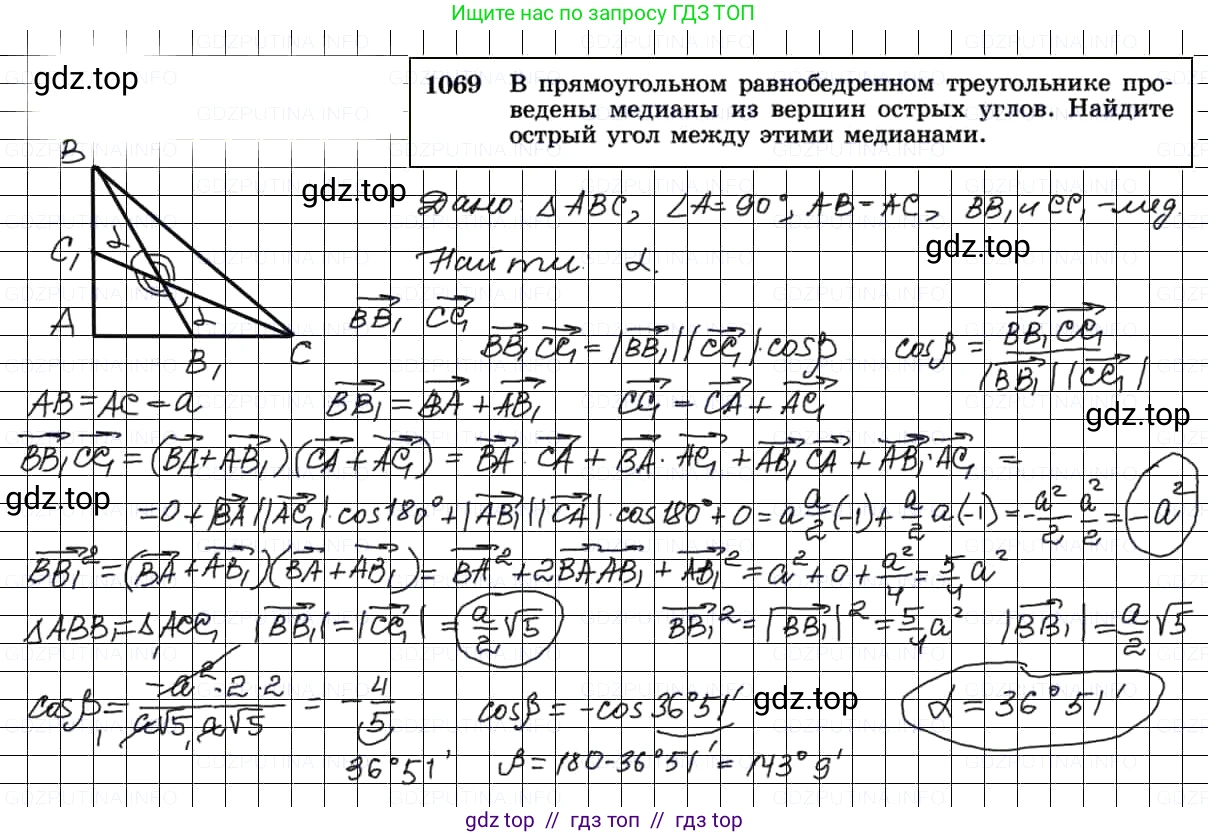 Ищите нас по запросу ГДЗ ТОП
gdz.top
1069 В прямоугольном равнобедренном треугольнике про-
ведены медианы из вершин острых углов. Найдите
острый угол между этими медианами.
B
gdz.top
Дано: △ABC, ∠A=90°, AB=AC, BB₁ и CC₁ – мед.
C₁ α
gdz.top
Найти α.
A α
B₁ C
BB₁→ CC₁→
BB₁→ CC₁→ = |BB₁→| |CC₁→| · cosβ cosβ = BB₁→ CC₁→ / |BB₁→| |CC₁→|
AB = AC = a BB₁→ = BA→ + AB₁→ CC₁→ = CA→ + AC₁→
gdz.top
BB₁→ CC₁→ = (BA→ + AB₁→)(CA→ + AC₁→) = BA→ · CA→ + BA→ · AC₁→ + AB₁→ CA→ + AB₁→ · AC₁→ =
gdz.top
= 0 + |BA→| |AC₁→| · cos180° + |AB₁→| |CA→| · cos180° + 0 = a a/2 (-1) + a/2 a(-1) = -a²/2 - a²/2 = -a²
BB₁→² = (BA→ + AB₁→)(BA→ + AB₁→) = BA→² + 2BA→ AB₁→ + AB₁→² = a² + 0 + a²/4 = 5/4 a²
△ABB₁ = △ACC₁ |BB₁→| = |CC₁→| = a/2 √5 BB₁→² = |BB₁→|² = 5/4 a² |BB₁→| = a/2 √5
cosβ = -a² · 2 · 2 / a√5 · a√5 = -4/5 cosβ = -cos36°51′ gdz.top α = 36°51′
36°51′ β = 180 - 36°51′ = 143°9′
gdz.top // гдз топ // гдз top
GDZPUTINA.INFO